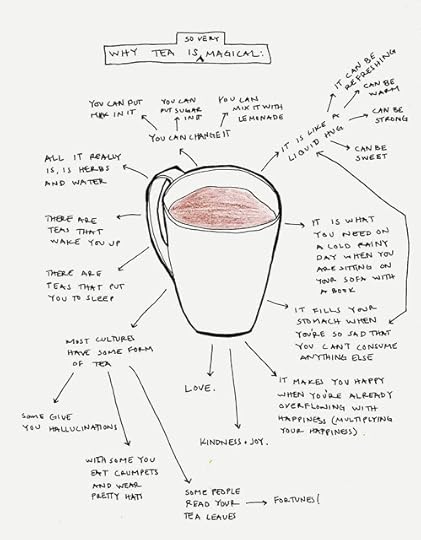 SO VERY
WHY TEA IS MAGICAL:
YOU CAN PUT
MILK IN IT
YOU CAN
PUT SUGAR
IN IT
YOU CAN
MIX IT WITH
LEMONADE
YOU CAN CHANGE IT
IT IS LIKE A
LIQUID HUG
IT CAN BE
REFRESHING
CAN BE
WARM
CAN BE
STRONG
CAN BE
SWEET
ALL IT REALLY
IS, IS HERBS
AND WATER
THERE ARE
TEAS THAT
WAKE YOU UP
THERE ARE
TEAS THAT PUT
YOU TO SLEEP
IT IS WHAT
YOU NEED ON
A COLD RAINY
DAY WHEN YOU
ARE SITTING ON
YOUR SOFA WITH
A BOOK
IT FILLS YOUR
STOMACH WHEN
YOU'RE SO SAD THAT
YOU CAN'T CONSUME
ANYTHING ELSE
MOST CULTURES
HAVE SOME FORM
OF TEA
SOME GIVE
YOU HALLUCINATIONS
WITH SOME YOU
EAT CRUMPETS
AND WEAR
PRETTY HATS
SOME PEOPLE
READ YOUR
TEA LEAVES
FORTUNES!
LOVE.
KINDNESS + JOY.
IT MAKES YOU HAPPY
WHEN YOU'RE ALREADY
OVERFLOWING WITH
HAPPINESS (MULTIPLYING
YOUR HAPPINESS).